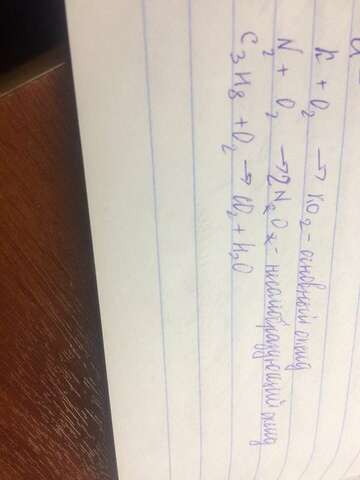 K + O₂ → KO₂ - основный оксид
N₂ + O₂ → 2N₂Oₓ - несолеобразующий оксид
C₃H₈ + O₂ → CO₂ + H₂O